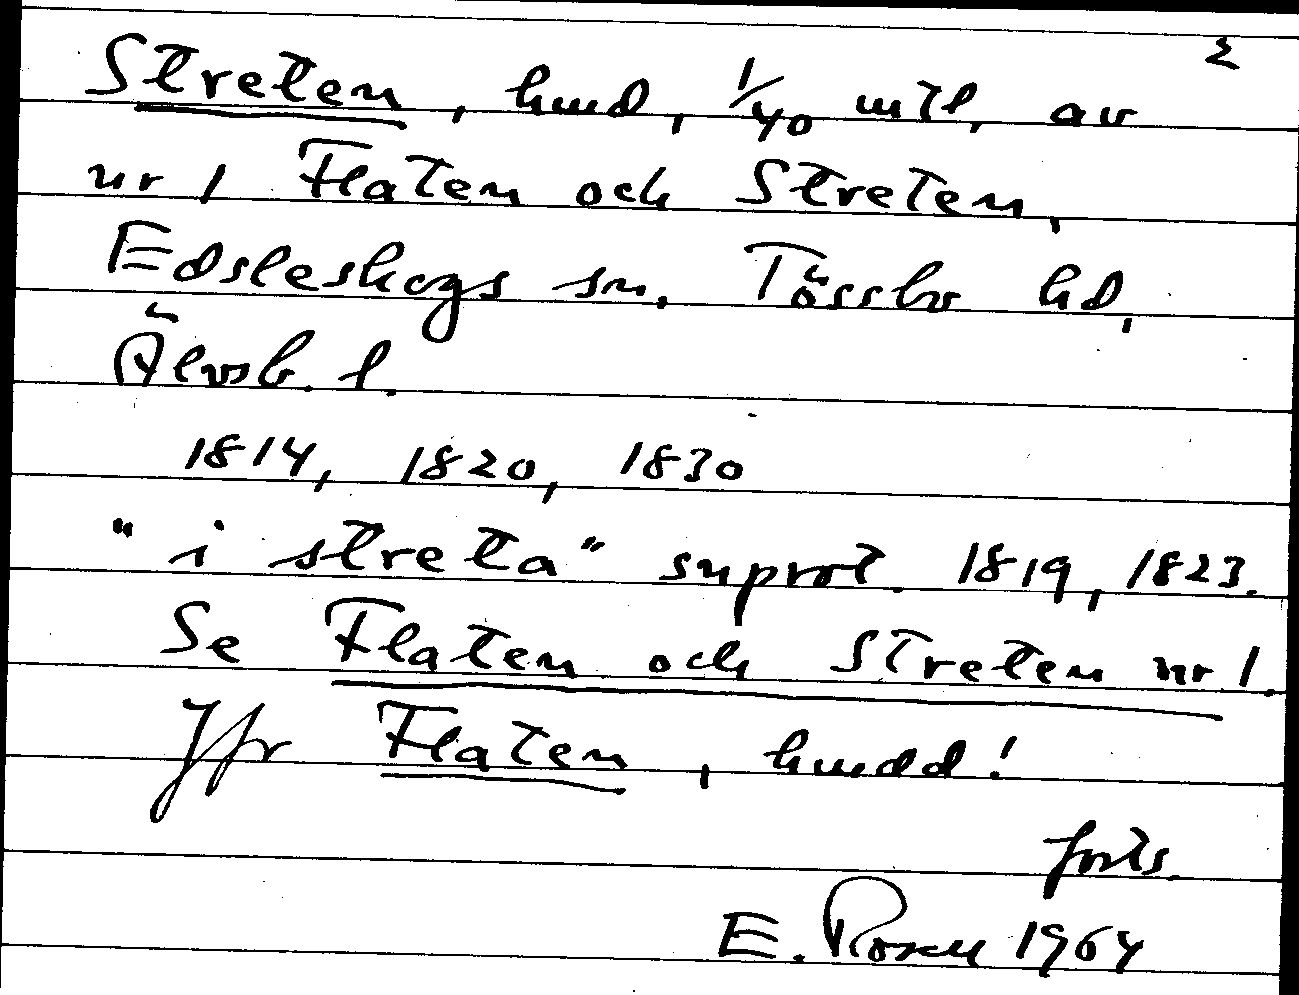 2
Streten, hmd, 1/40 mtl, av
nr 1 Flaten och Streten,
Edsleskogs sn, Tössbo hd,
Älvsb. l.
1814, 1820, 1830
"i streta" snprot. 1819, 1823.
Se Flaten och Streten nr 1.
Jfr Flaten, hmdd!
forts.
E. Rosell 1964